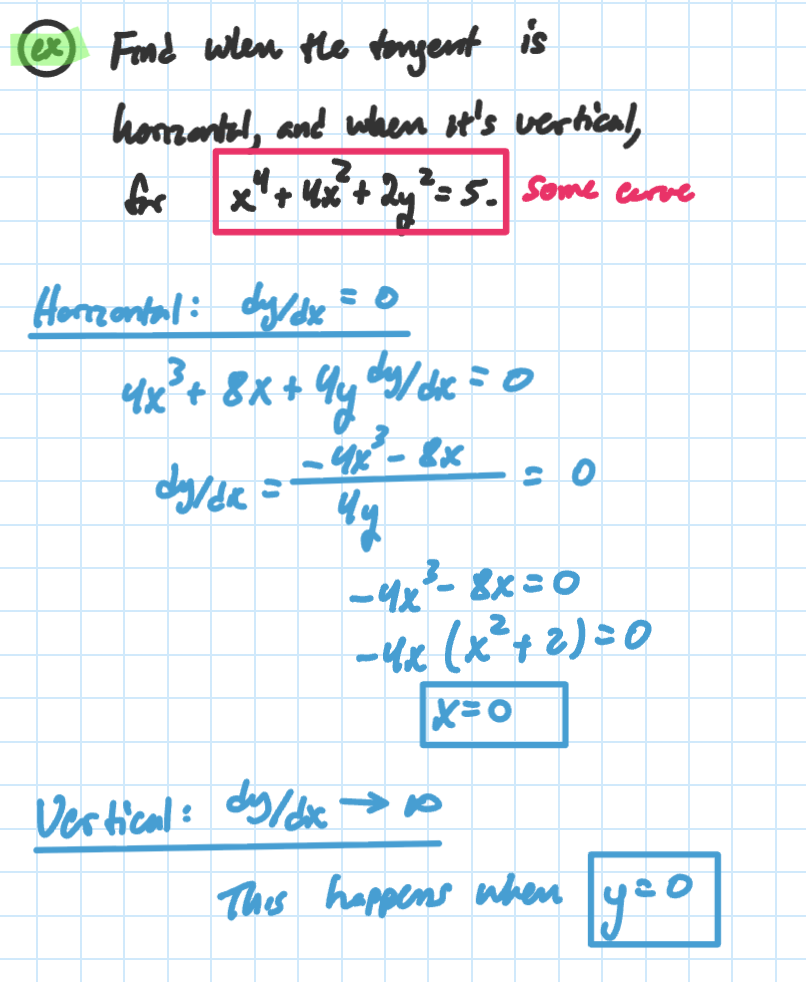 ex Find when the tangent is
horizontal, and when it's vertical,
for x⁴ + 4x² + 2y² = 5. some curve
Horizontal: dy/dx = 0
4x³ + 8x + 4y dy/dx = 0
dy/dx = (-4x³ - 8x)/(4y) = 0
-4x³ - 8x = 0
-4x (x² + 2) = 0
x = 0
Vertical: dy/dx → ∞
This happens when y = 0